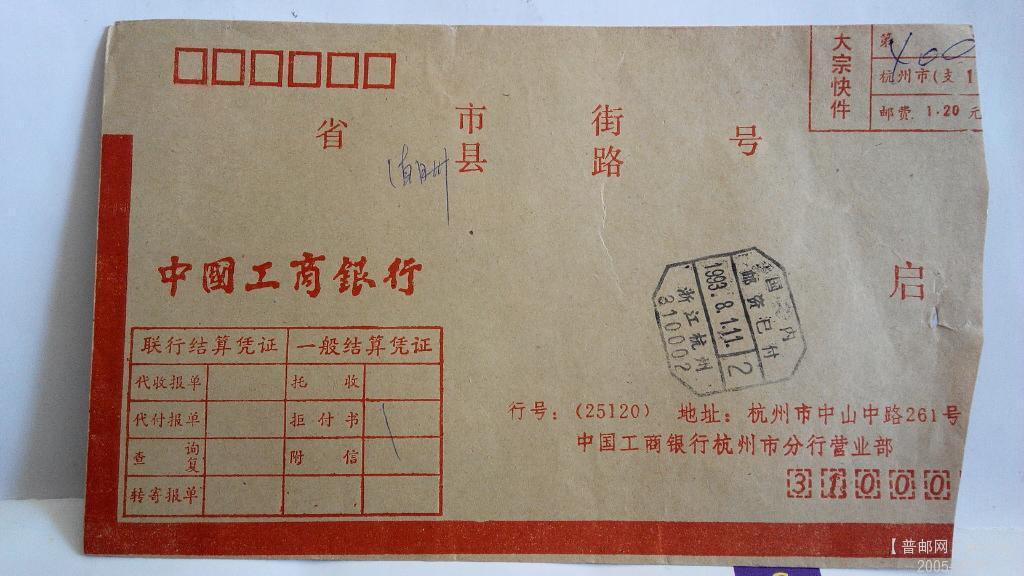 大宗快件
第400
杭州市(支1
邮费 1.20元
省 市县 街路 号
中國工商銀行
启
国内
邮资已付
1993.8.11.11
2
浙江杭州
310002
联行结算凭证 一般结算凭证
代收报单 托收
代付报单 拒付书
查询复 附信
转寄报单
行号:(25120) 地址:杭州市中山中路261号
中国工商银行杭州市分行营业部
31000
【普邮网
2005